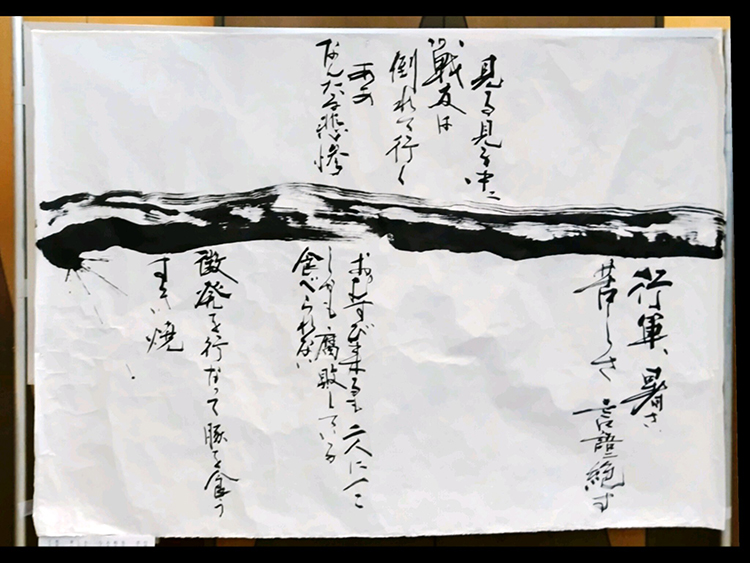 見る見る中ニ
戦友は
倒れて行く
ああ
なんたる悲惨
行軍、暑さ
苦しさ 言語ニ絶す
おむすび来るも 二人に一こ
しかも腐敗している
食べられない
徴発を行なって豚を食う
すき焼